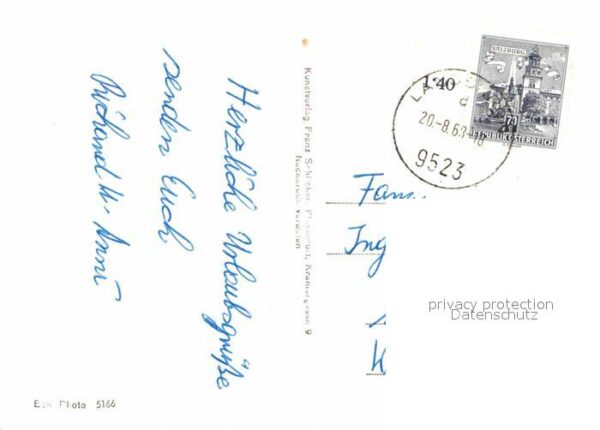 Herzliche Urlaubsgrüße
senden Euch
Richard u. Anni
Kunstverlag Franz Schilcher, Klagenfurt, Kramergasse 9
Nachdruck verboten
SALZBURG
1·40
70
REPUBLIK ÖSTERREICH
20.-8.63.-18
9523
Fam.
Ing
privacy protection
Datenschutz
Photo 5166